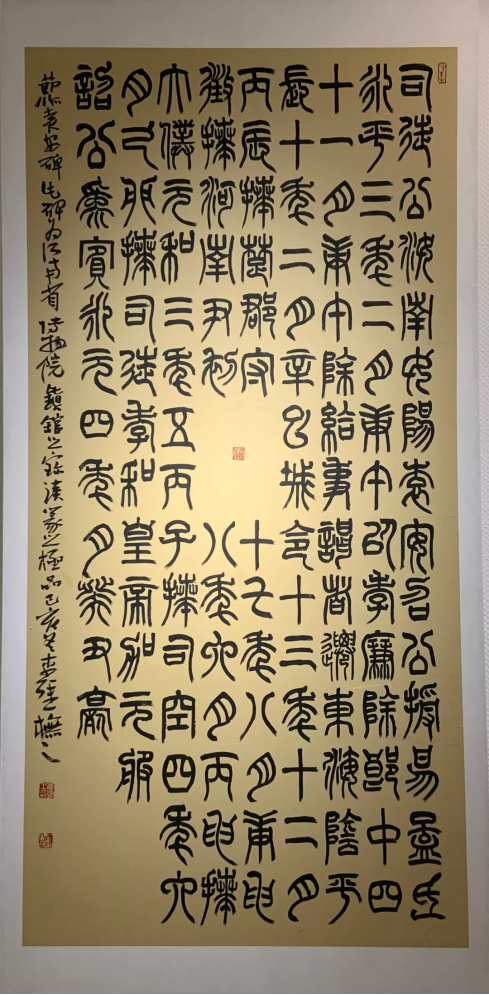 司徒公汝南女陽袁安召公授易孟氏
永平三年二月庚午以孝廉除郎中四
十一月庚午除給事謁者遷東海陰平
長十年二月辛巳城令十三年十二月
丙辰拜楚郡守十七年八月庚申
徵拜河南尹初八年六月丙申拜
大僕元和三年五丙子拜司空四年六
月己卯拜司徒孝和皇帝加元服
詔公為賓永元四年月癸丑薨
袁安碑此碑為河南省博物院鎮館之寶漢篆之極品己亥冬李撫之